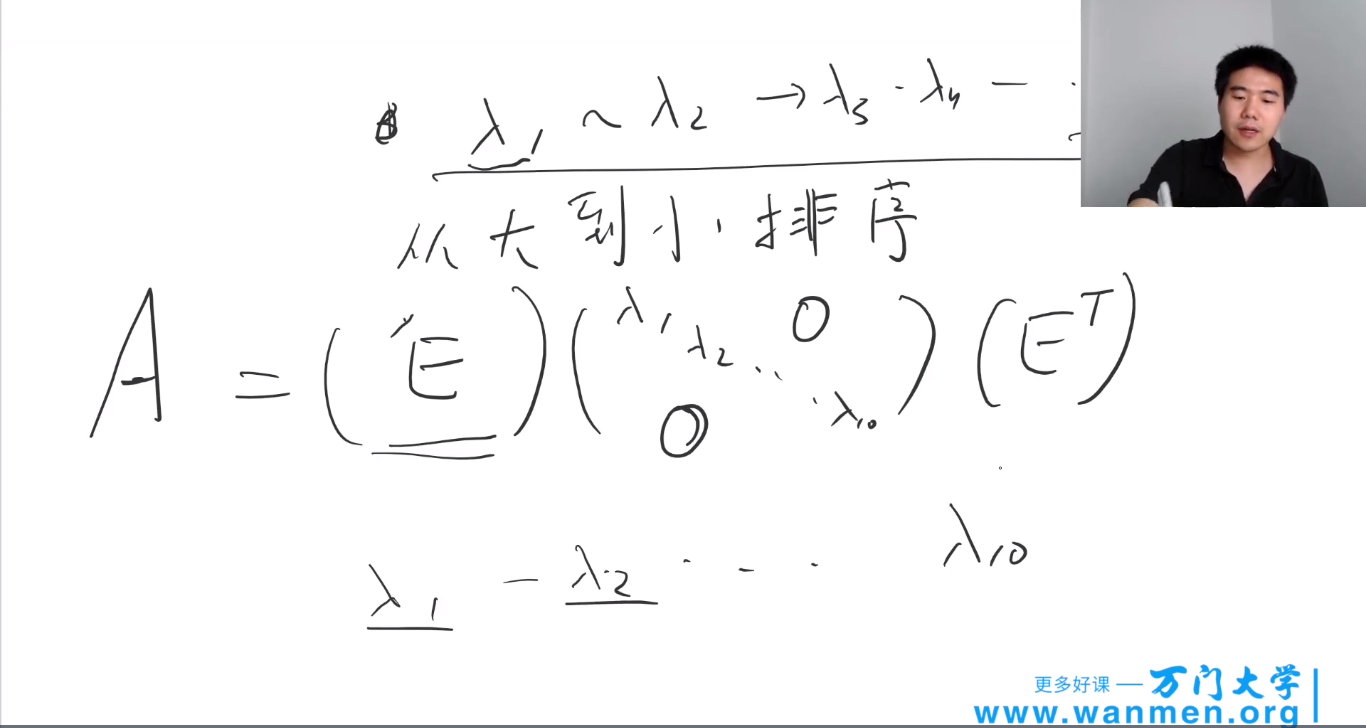 λ₁ ~ λ₂ → λ₃ · λ₄ —
从大到小排序
A = (E)(λ₁ λ₂ ⋱ λ₁₀ 0 0)(Eᵀ)
λ₁ – λ₂ · - · λ₁₀
更多好课 — 万门大学
www.wanmen.org